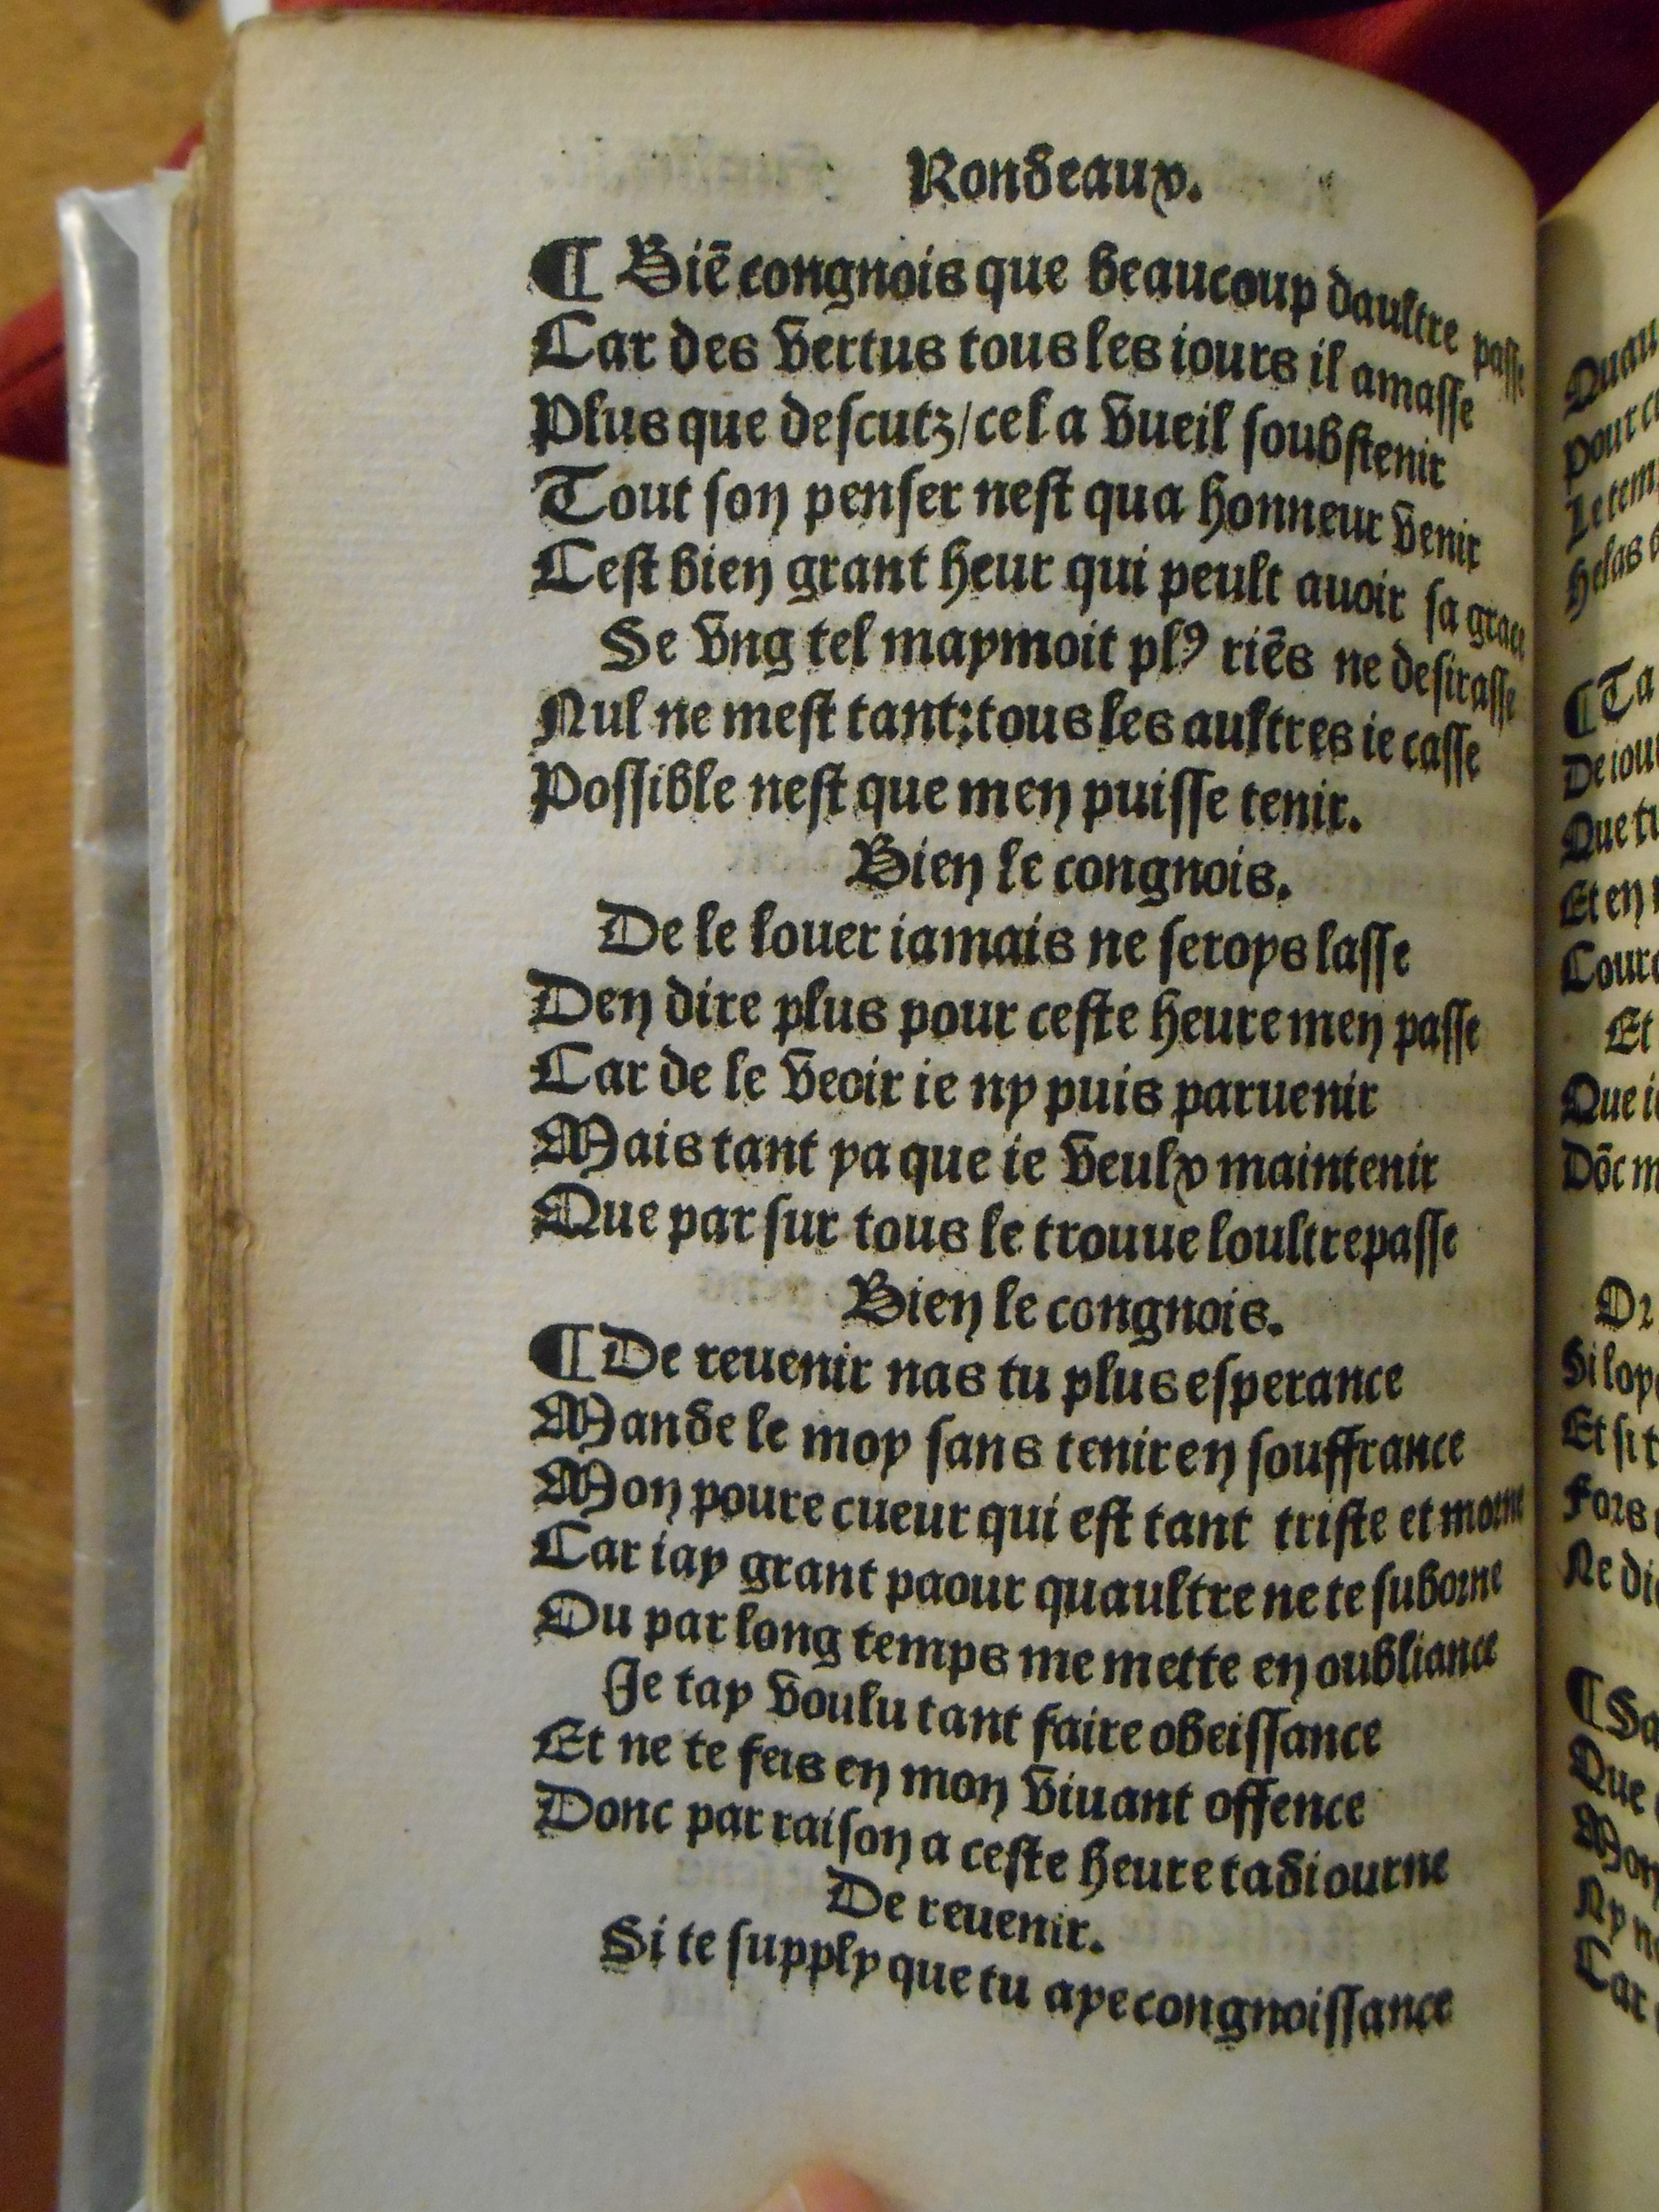 Rondeaux.
¶ Biē congnois que beaucoup daultre passe
Car des vertus tous les iours il amasse
Plus que descutz/cela vueil soubstenir
Tout son penser nest qua honneur venir
Cest bien grant heur qui peult auoir sa grace
Se vng tel maymoit plꝰ riēs ne desirasse
Nul ne mest tant:tous les aultres ie casse
Possible nest que men puisse tenir.
Bien le congnois.
De le louer iamais ne seroys lasse
Den dire plus pour ceste heure men passe
Car de le veoir ie ny puis paruenir
Mais tant ya que ie veulx maintenir
Que par sur tous le trouue loultrepasse
Bien le congnois.
¶ De reuenir nas tu plus esperance
Mande le moy sans tenir en souffrance
Mon poure cueur qui est tant triste et morne
Car iay grant paour quaultre ne te suborne
Ou par long temps me mette en oubliance
Je tay voulu tant faire obeissance
Et ne te feis en mon viuant offence
Donc par raison a ceste heure tadiourne
De reuenir.
Si te supply que tu aye congnoissance
Quau
Pour c
Le tem
Helas
¶ Ta
De iou
Que tu
Et en
Cour
Et
Que i
Dōc m
Or
Si loy
Et si t
Fors
Ne di
¶ Sa
Que
Mon
Ny n
Car